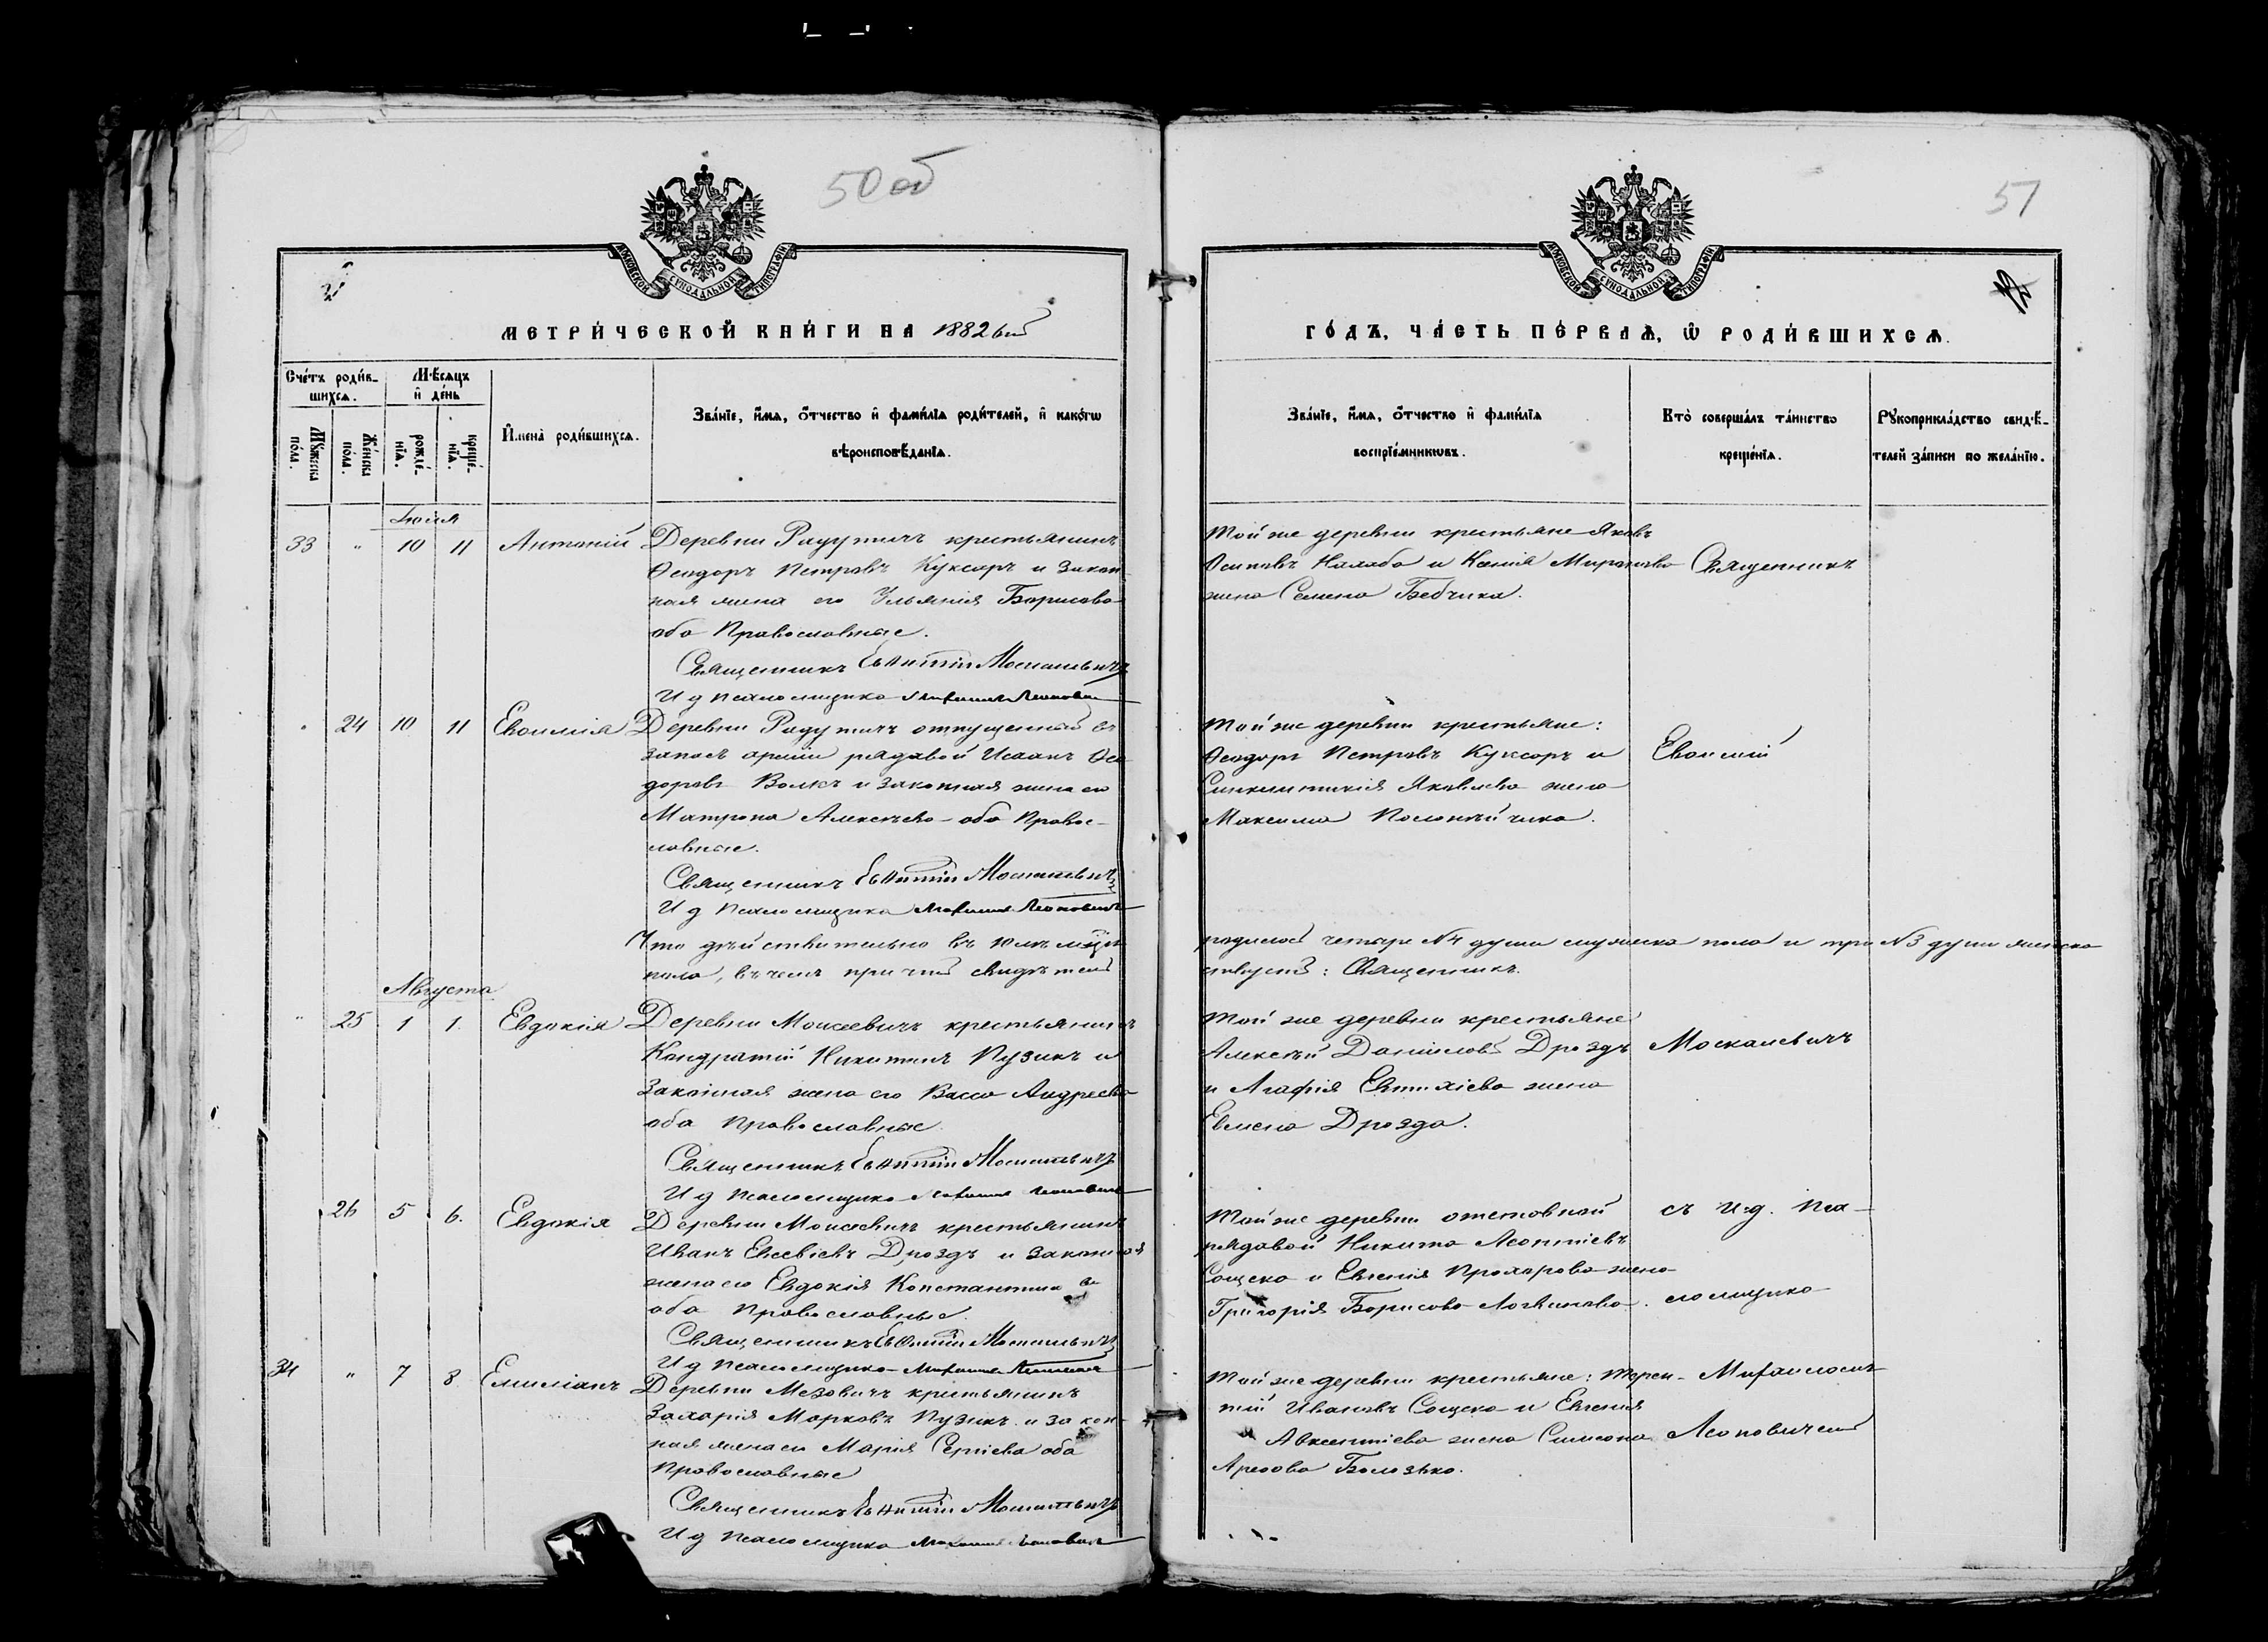 50 об
51
МОСКОВСКОЙ СѴНОДАЛЬНОЙ ТИПОГРАФІИ
МОСКОВСКОЙ СѴНОДАЛЬНОЙ ТИПОГРАФІИ
МЕТРИ́ЧЕСКОЙ КНИ́ГИ НА 1882 ый
ГО́ДЪ, ЧА́СТЬ ПЕ́РВАѦ, Ѡ РОДИ́ВШИХСѦ.
Сче́тъ роди́в-
шихсѧ.
Мѣ́сѧцъ
и҆ де́нь
Мꙋ́жеска
по́ла.
Же́нска
по́ла.
рожде́-
нїѧ.
креще́-
нїѧ.
И҆мена̀ роди́вшихсѧ.
Зва́нїе, и҆́мѧ, ѻ҆́тчество и҆ фами́лїѧ роди́телей, и҆ како́гѡ
вѣроисповѣ́данїѧ.
Зва́нїе, и҆́мѧ, ѻ҆́тчество и҆ фами́лїѧ
воспрїе́мникѡвъ.
Кто̀ соверша́лъ та́инство
креще́нїѧ.
Рꙋкоприкла́дство свидѣ́-
телей за́писи по жела́нїю.
Іюля
33 " 10 11 Антоній Деревни Радутичъ крестьянинъ
Ѳеодоръ Петровъ Куксаръ и закон
ная жена его Ульянія Борисова
оба Православные.
Священникъ Евѳимій Москалевичъ
И д псаломщика Михаилъ Леоновичъ
Той же деревни крестьяне Яковъ
Осиповъ Калаба и Ксенія Миронова
жена Семена Бебчика.
Священникъ
" 24 10 11 Евѳимія Деревни Радутичъ отпущенный въ
запасъ арміи рядовой Исаакъ Ѳео
доровъ Волкъ и законная жена его
Матрона Алексѣева оба Правос-
лавные.
Священникъ Евѳимій Москалевичъ
И д псаломщика Михаилъ Леоновичъ
Той же деревни крестьяне:
Ѳеодоръ Петровъ Куксаръ и
Синклитикія Яковлева жена
Максима
Евѳимій
Что дѣйствительно въ Юлѣ мцѣ родилось четыре №4 души мужеска пола и три №3 души женска
пола, въ чемъ причтъ свидѣтель ствуетъ: Священникъ.
Августа
" 25 1 1. Евдокія Деревни Моисеевичъ крестьянинъ
Кондратій Никитинъ Пузикъ и
Законная жена его Васса Андреева
оба Православные.
Священникъ Евѳимій Москалевичъ
И д псаломщика Михаилъ Леоновичъ
Той же деревни крестьяне
Алексѣй Даніиловъ Дроздъ
и Агафія Евтихіева жена
Евмена Дрозда.
Москалевичъ
26 5 6. Евдокія Деревни Моисеевичъ крестьянинъ
Иванъ Евсевіевъ Дроздъ и законная
жена его Евдокія Константинова
оба Православные.
Священникъ Евѳимій Москалевичъ
И д псаломщика Михаилъ Леоновичъ
Той же деревни отставной
рядовой Никита Леонтіевъ
Сощеко и Евгенія Прохорова жена
Григорія Борисова Логвинова.
съ И.д. Пса-
ломщика
34 " 7 8 Емиліанъ Деревни Мезовичъ крестьянинъ
Захарія Марковъ Пузикъ и закон-
ная жена его Марія Сергіева оба
Православные
Священникъ Евѳимій Москалевичъ
И д псаломщика Михаилъ Леоновичъ
Той же деревни крестьяне: Терен-
тій Ивановъ Сощеко и Евгенія
Авксентіева жена Симеона
Михаиломъ
Леоновичемъ